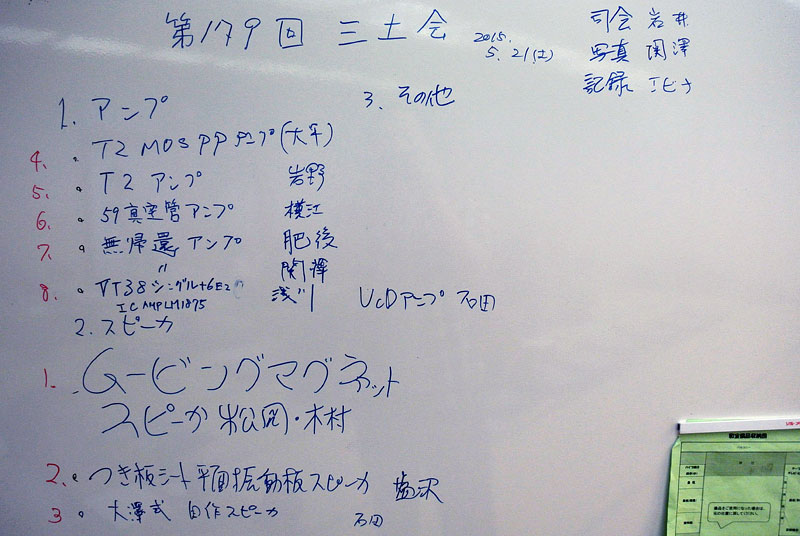 第179回 三土会
2015.
5.21(土)
司会 岩井
写真 関澤
記録 エビナ
1. アンプ
3. その他
4. ・ T2 MOS PPアンプ(大平)
5. ・ T2 アンプ 岩野
6. ・ 59真空管アンプ 横江
7. ・ 無帰還アンプ 肥後
〃 関澤
8. ・ VT38シングル+6E2 浅川 UcDアンプ 石田
IC AMP LM1875
2. スピーカ
1. ・ ムービングマグネット
スピーカ 松岡・木村
2. ・ つき板シート平面振動板スピーカ 塩沢
3 ・ 大澤式 自作スピーカ 石田